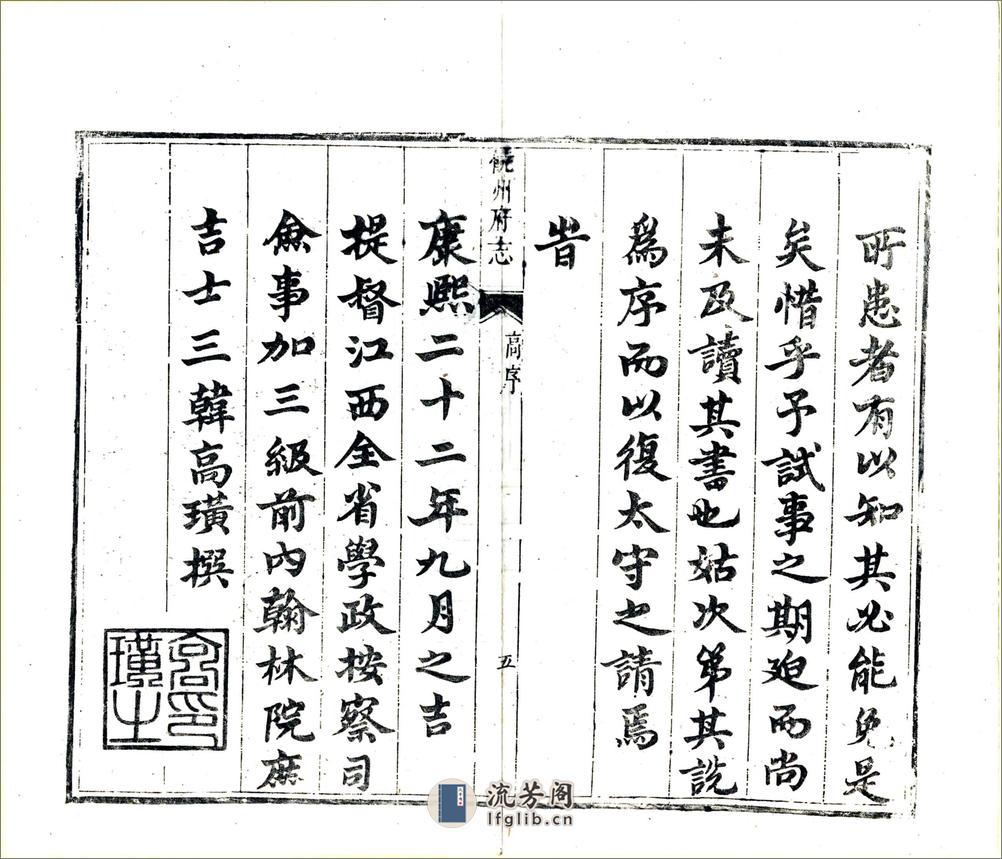 所患者有以知其必能免是
矣惜乎予試事之期廹而尚
未及讀其書也姑次第其說
為序而以復太守之請焉
旹
饒州府志
高序
五
康熙二十二年九月之吉
提督江西全省學政按察司
僉事加三級前內翰林院庶
吉士三韓高璜撰
流芳阁
lfglib.cn